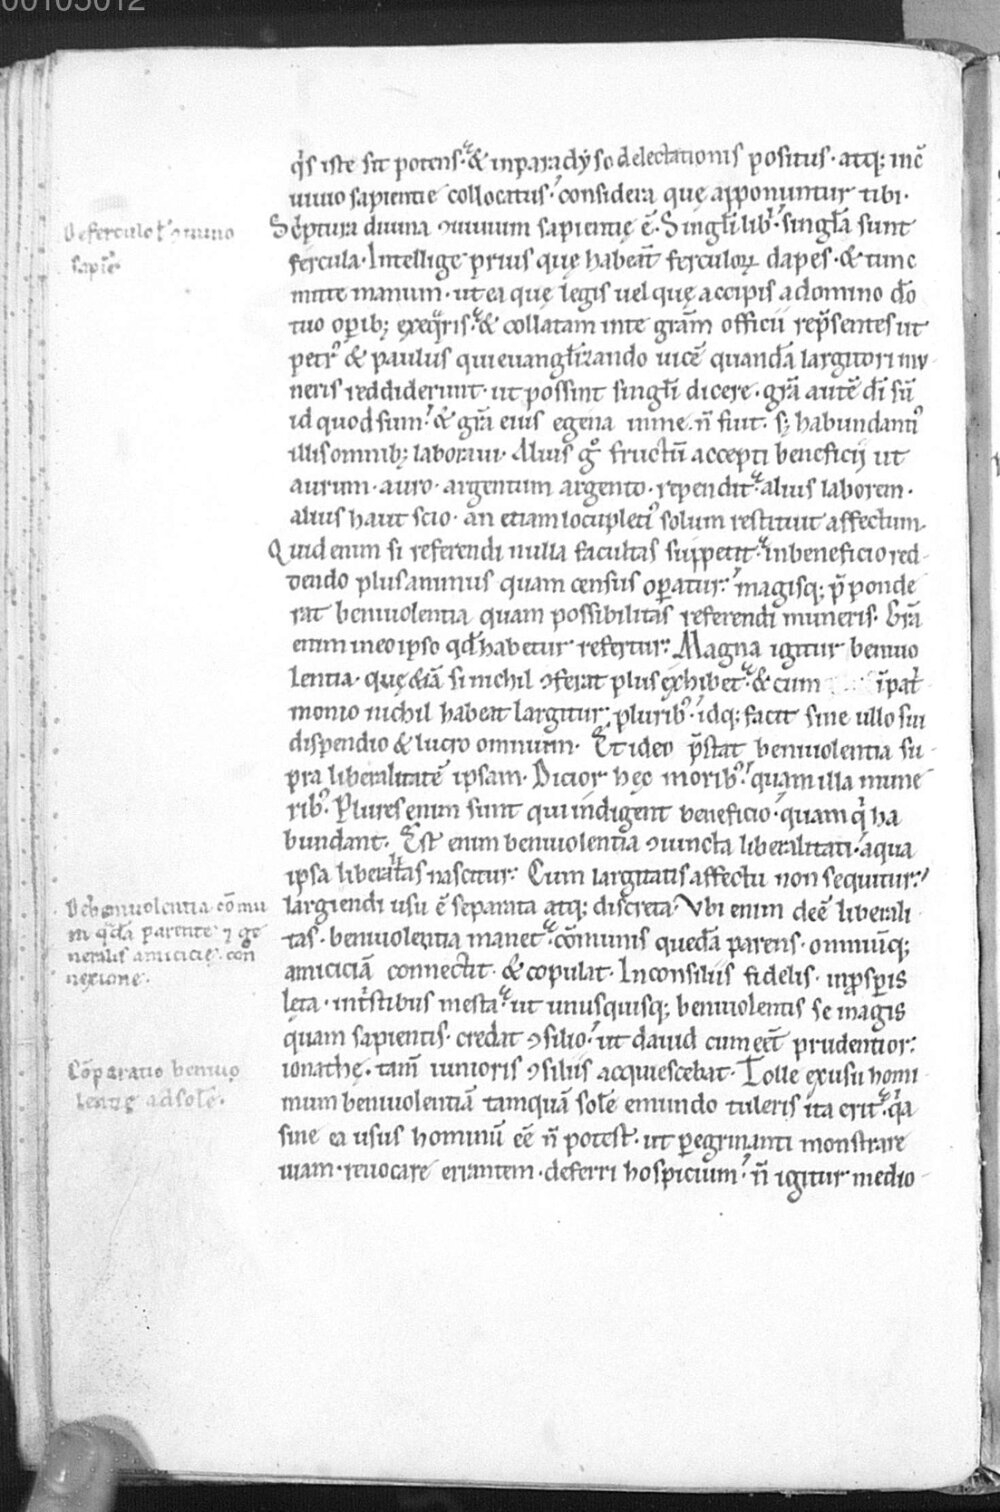 00105012
q's iste sit potens. & inparadẏso delectationis positus. atq; inc̄
uiuio sapientie collocatus. considera quę apponuntur tibi.
Sc̄ptura diuina ꝯuiuium sapientię ē. Singl̄i lib'. singl̄a sunt
fercula. Intellige prius quę habeāt ferculoꝝ dapes. & tunc
mitte manum. ut ea quę legis uel quę accipis a domino dō
tuo oꝑib; exeq̄ris. & collatam in te grām officii rep̄sentes ut
petr' & paulus qui euangl̄izando uicē quandā largitori mu
neris reddiderunt. ut possint singl̄i dicere. grā autē dī sū
id quod sum. & grā eius egena in me n̄ fuit. s; habundanti'
illis omnib; laboraui. Alius g° fructū accepti beneficij ut
aurum. auro. argentum argento. rependit. alius laborem.
alius haut scio. an etiam locupleti' solum restituit affectum.
Quid enim si referendi nulla facultas suppetit. in beneficio red
dendo plus animus quam census oꝑatur. magisq; p̄ponde
rat beniuolentia quam possibilitas referendi muneris. Grā
enim in eo ipso qd̄ habetur refertur. Magna igitur beniuo
lentia. quę &iā si nichil ꝯferat plus exhibet. & cum īpat
monio nichil habeat largitur plurib'. idq; facit sine ullo sui
dispendio & lucro omnium. Et ideo p̄stat beniuolentia su
pra liberalitatē ipsam. Ditior hęc morib'. quam illa mune
rib'. Plures enim sunt qui indigent beneficio. quam q̇ ha
bundant. Est enim beniuolentia ꝯiuncta liberalitati. a qua
ipsa liberalitas nascitur. Cum largitatis affectu non sequitur.
largiendi usu ē separata atq; discreta. Vbi enim deē liberali
tas. beniuolentia manet. cōmunis quedā parens. omniūq;
amiciciā connectit. & copulat. In consiliis fidelis. in ꝓsꝑis
lęta. in t'stibus mesta. ut unusquisq; beniuolentis se magis
quam sapientis. credat ꝯsilio. ut dauid cum eēt prudentior.
ionathę. tam̄ iunioris ꝯsiliis acquiescebat. Tolle ex usu homi
num beniuolentiā tamquā solē e mundo tuleris ita erit. q̄a
sine ea usus hominū eē n̄ potest. ut ꝑegrinanti monstrare
uiam. reuocare errantem. deferri hospicium. n̄ igitur medio
De ferculo ꝯuiuio
sapiē.
De beniuolentia cōmu
ni q̄dā parente ⁊ ge
neralis amicicię con
nexione.
Cōparatio beniuo
lentię ad solē.